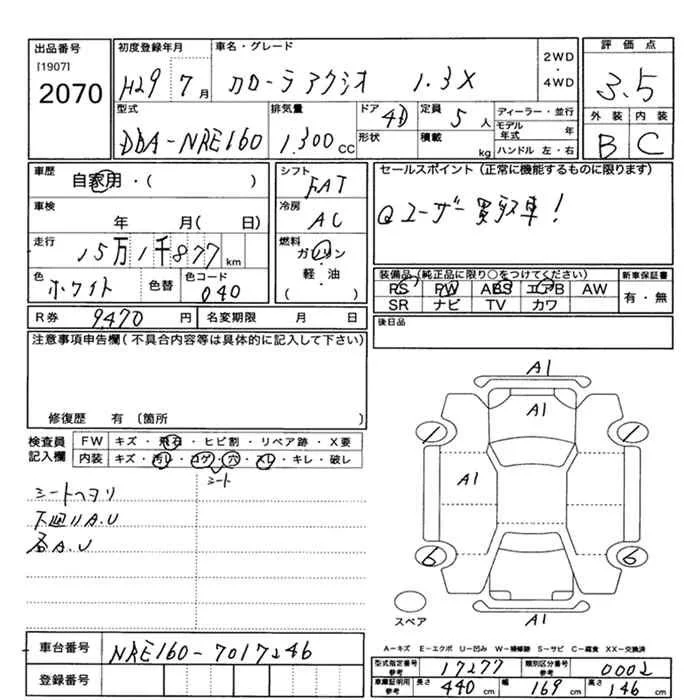 出品番号
[1907]
2070
初度登録年月
H29 7月
車名・グレード
カローラアクシオ 1.3X
2WD
・
4WD
評価点
3.5
外装 内装
B C
型式
DBA-NRE160
排気量
1.300CC
ドア
4D
形状
定員
5人
積載
kg
ディーラー・並行
モデル年式 年
ハンドル 左・右
車歴
自家用・( )
車検
年 月( 日)
走行
15万1千877km
色
ホワイト
色替
色コード
040
シフト
FAT
冷房
AC
燃料
ガソリン
・
軽・油
( )
セールスポイント(正常に機能するものに限ります)
Qユーザー買取車!
装備品(純正品に限り○をつけてください)
PS PW ABS エアB AW
SR ナビ TV カワ
新車保証書
有・無
R券 9,470円
名変期限 月 日
後日品
注意事項申告欄(不具合内容等は具体的に記入して下さい)
修復歴 有〔箇所
検査員記入欄
FW キズ・飛石・ヒビ割・リペア跡・X要
内装 キズ・汚レ・コゲ・穴・スレ・キレ・破レ
シート
シートヘタリ
下廻りA.U
各A.U
A1
A1
A1
A1
1
1
6
6
スペア
A-キズ E-エクボ U-凹み W-補修跡 S-サビ C-腐食 XX-交換済
車台番号
NRE160-7017246
登録番号
型式指定番号 参考 17277
類別区分番号 参考 0002
車庫証明用 参考
長さ 440cm
幅 169cm
高さ 146cm